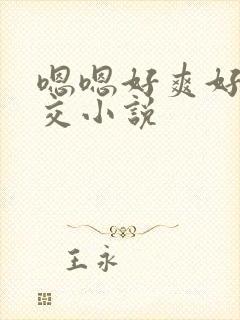 嗯嗯好爽好
交小说
王永